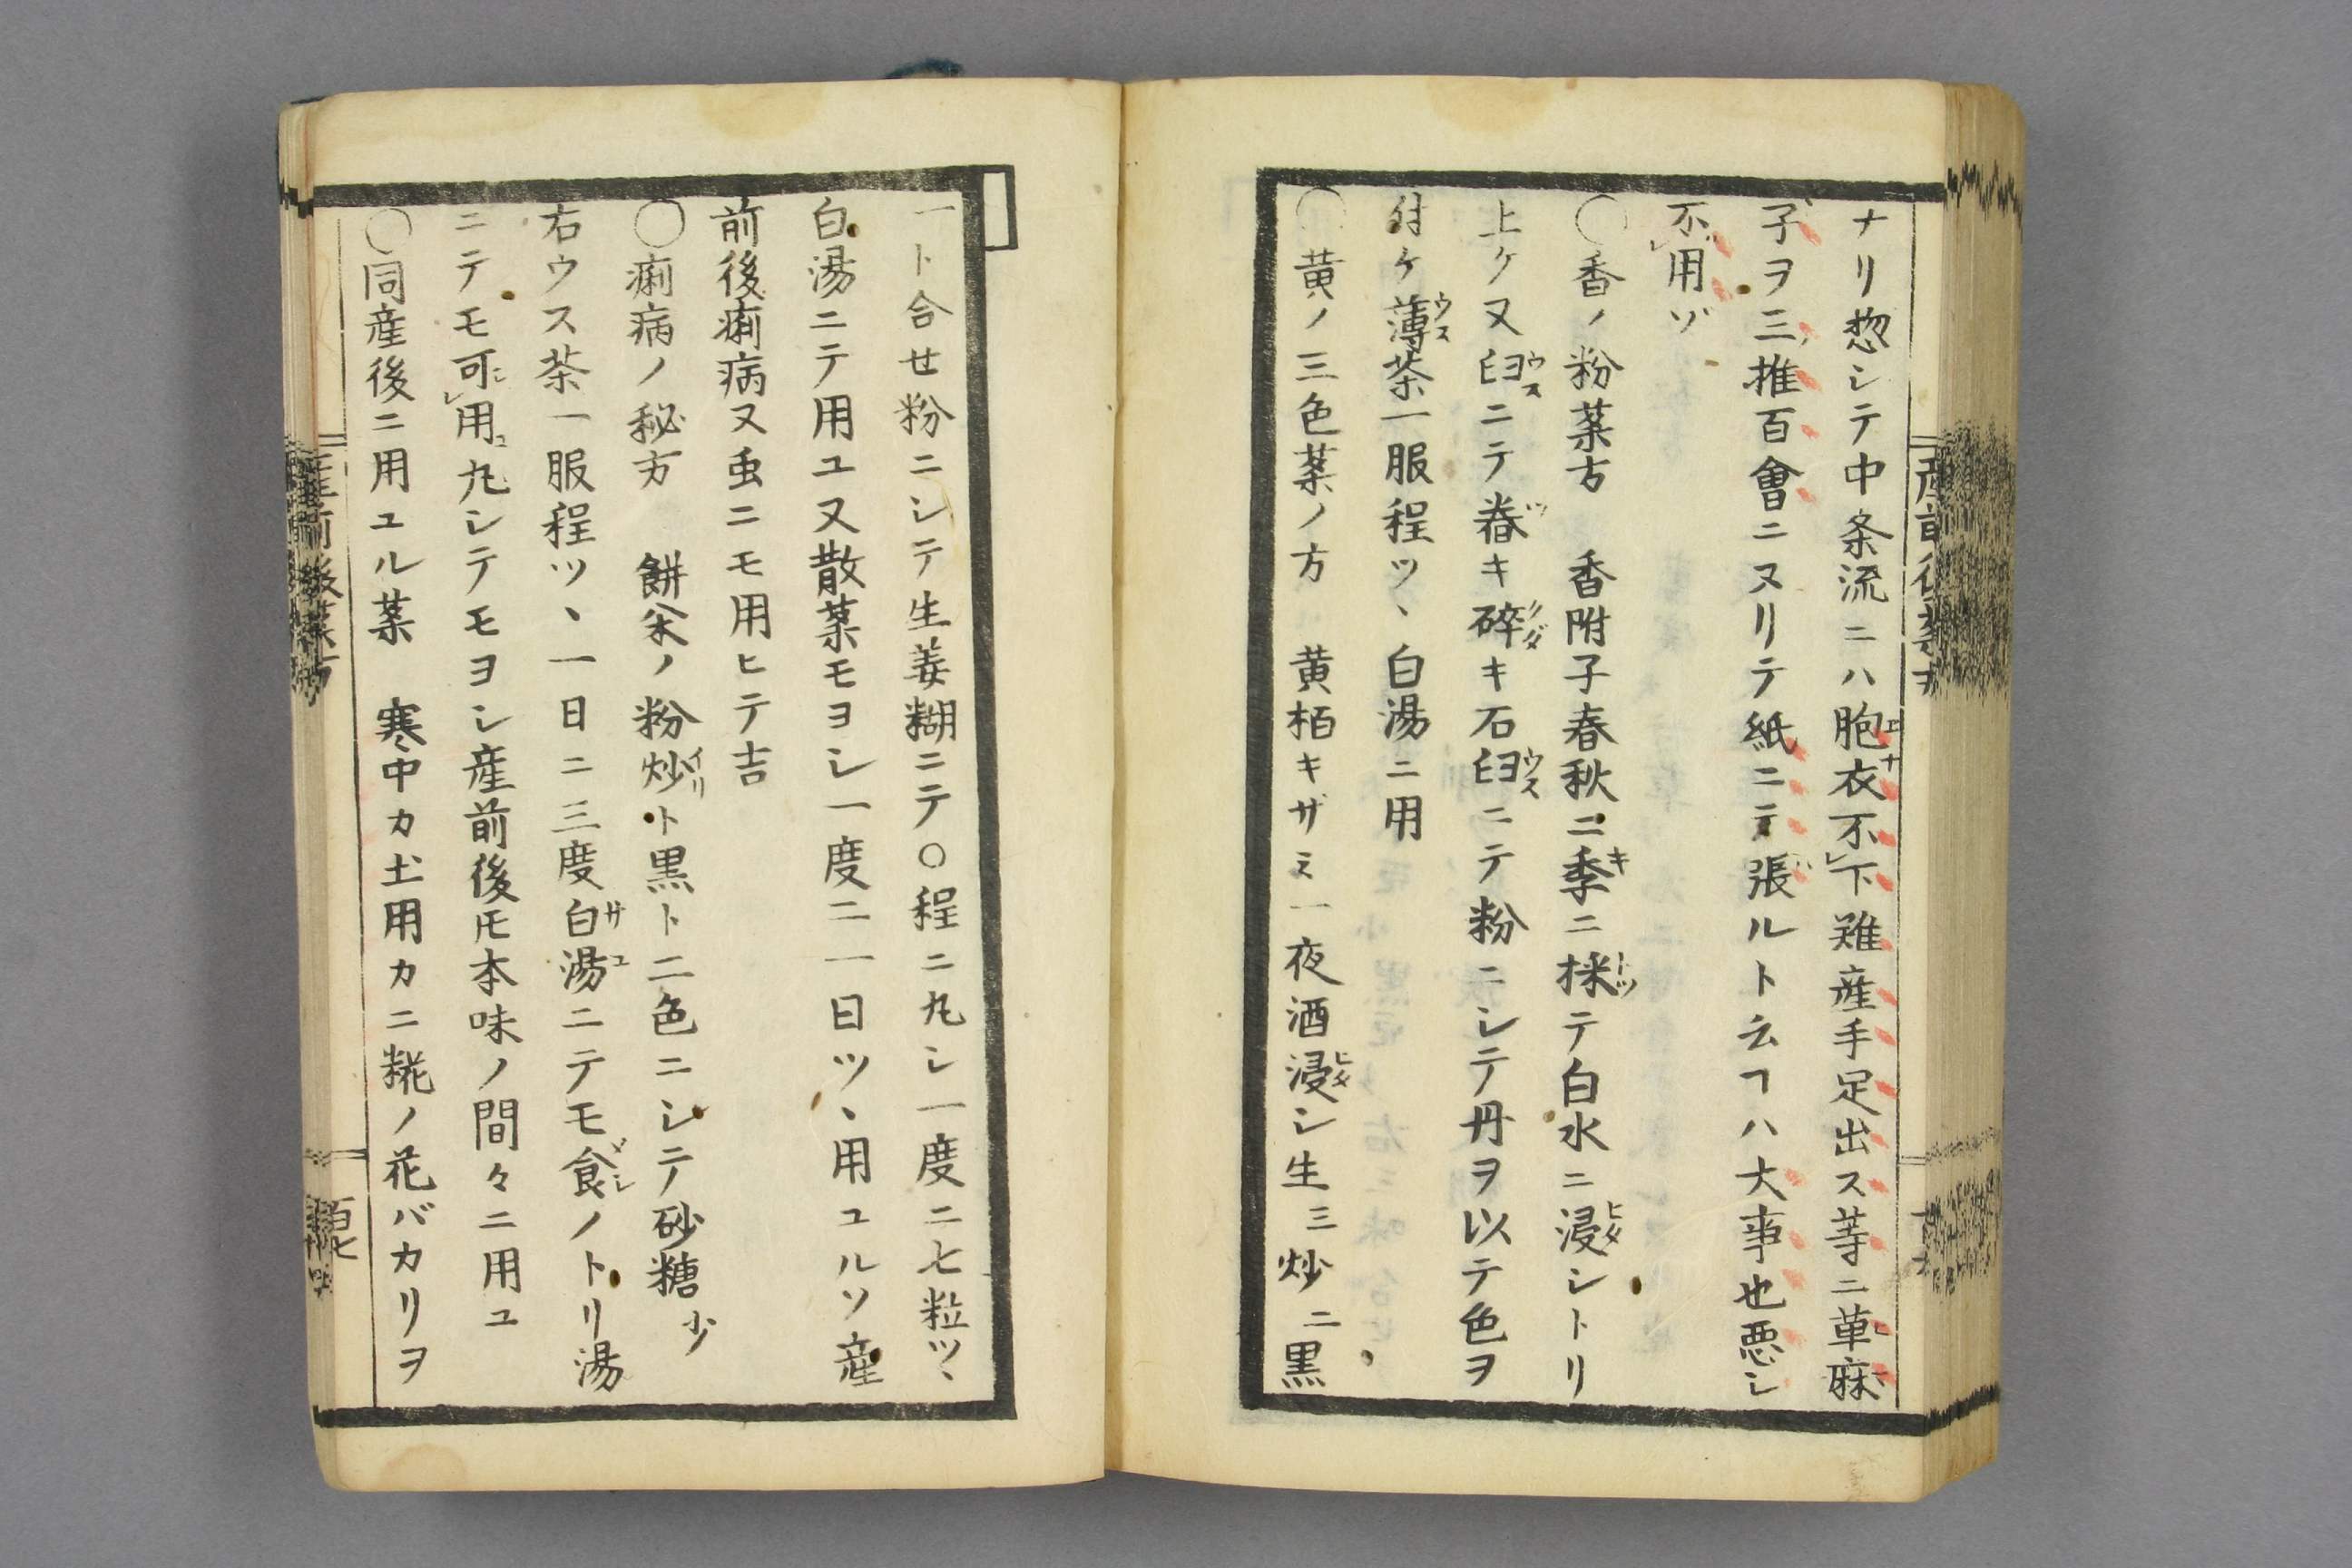 ナリ惣シテ中条流ニハ胞衣不下難産手足出ス等ニ萆麻
子ヲ三推百會ニヌリテ紙ニテ張ルト云ヿハ大事也悪シ
不用ソ
〇香ノ粉薬方 香附子春秋ニ季ニ採テ白水ニ浸シトリ
上ケ又臼ニテ舂キ碎キ石臼ニテ粉ニシテ丹ヲ以テ色ヲ
付ケ薄茶一服程ツヽ白湯ニ用
〇黄ノ三色薬ノ方 黄栢キザミ一夜酒浸シ生三炒二黒
一ト合せ粉ニシテ生姜糊ニテ○程ニ丸シ一度ニ七粒ツヽ
白湯ニテ用ユ又散薬モヨシ一度ニ一日ツヽ用ユルソ産
前後痢病又虫ニモ用ヒテ吉
〇痢病ノ秘方 餅米ノ粉炒ト黒ト二色ニシテ砂糖少
右ウス茶一服程ツヽ一日ニ三度白湯ニテモ食ノトリ湯
ニテモ可用丸シテモヨシ産前後モ本味ノ間々ニ用ユ
〇同産後ニ用ユル薬 寒中カ土用カニ糀ノ花バカリヲ
産前後薬方
百七